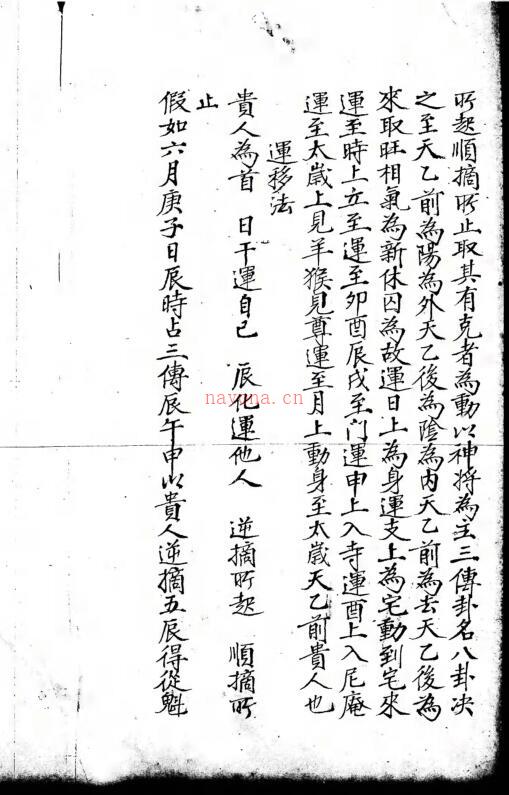 所起順摘所止取其有克者為動以神將為主三傳卦名八卦决
之至天乙前為陽為外天乙後為陰為內天乙前為去天乙後為
來取旺相氣為新休囚為故運日上為身運支上為宅動到宅來
運至時上立至運至卯酉辰戌至门運申上入寺運酉上入尼庵
運至太歲上見羊猴見尊運至月上動身至太歲天乙前貴人也
運移法
貴人為首 日干運自己 辰化運他人 逆摘所起 順摘所
止
假如六月庚子日辰時占三傳辰午申以貴人逆摘五辰得從魁
nayona.cn